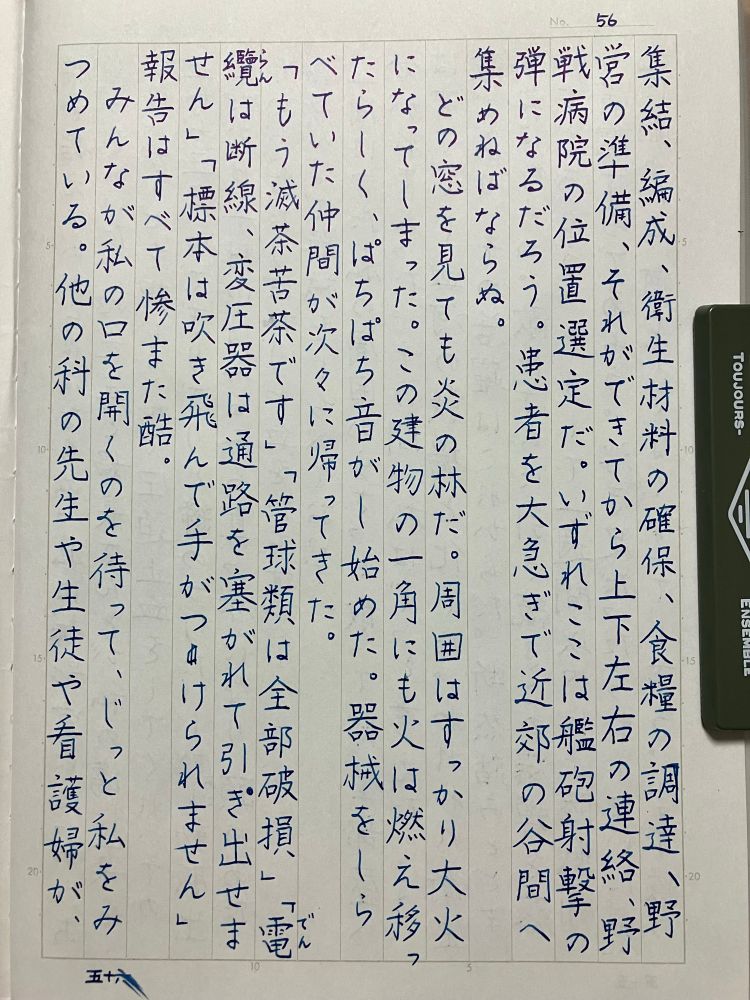 No. 56
集結、編成、衛生材料の確保、食糧の調達、野
営の準備、それができてから上下左右の連絡、野
戦病院の位置選定だ。いずれここは艦砲射撃の
弾になるだろう。患者を大急ぎで近郊の谷間へ
集めねばならぬ。
どの窓を見ても炎の林だ。周囲はすっかり大火
になってしまった。この建物の一角にも火は燃え移っ
たらしく、ぱちぱち音がし始めた。器械をしら
べていた仲間が次々に帰ってきた。
「もう滅茶苦茶です」「管球類は全部破損」「電
でん
纜は断線、変圧器は通路を塞がれて引き出せま
らん
せん」「標本は吹き飛んで手がつけられません」
報告はすべて惨また酷。
みんなが私の口を開くのを待って、じっと私をみ
つめている。他の科の先生や生徒や看護婦が、
五十六
5
10
15
20
5
10
15
20
10
5
TOUJOURS-
ENSEMBLE